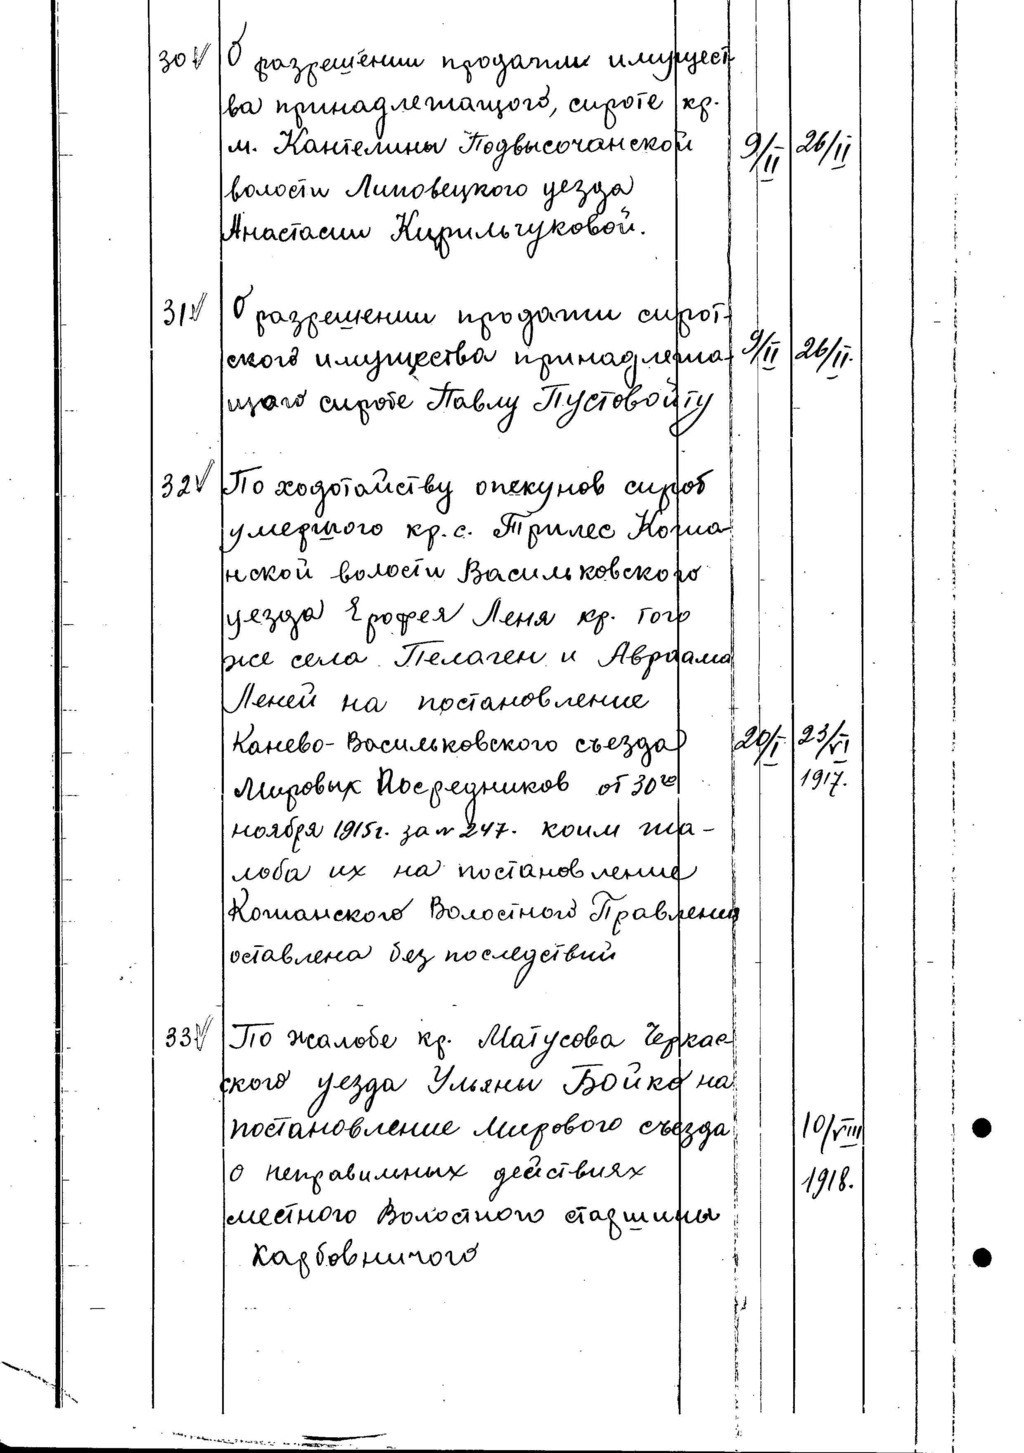 30 О разрешении продажи имущест-
ва принадлежащого, сироте кр.
м. Кантелины Подвысочанской 9/II 26/II
волости Липовецкого уезда
Анастасии Кирильчуковой.
31 О разрешении продажи сирот-
ского имущества принадлежа- 9/II 26/II.
щаго сироте Павлу Пустовойту
32 По ходотайству опекунов сирот
умершого кр. с. Трилес Коша-
нской волости Васильковского
уезда Ерофея Леня кр. того
же села Пелагеи и Авраама
Леней на постановление
Канево-Васильковского съезда 20/I 23/VI
Мировых Посредников от 30го 1917.
ноября 1915г. за № 247. коим жа-
лоба их на постановление
Кошанского Волостного Правления
оставлена без последствий
33 По жалобе кр. Матусова Черкас-
ского уезда Ульяны Бойко на
постановление Мирового съезда 10/VIII
о неправильных действиях 1918.
местного Волостного старшины
Карбовничого